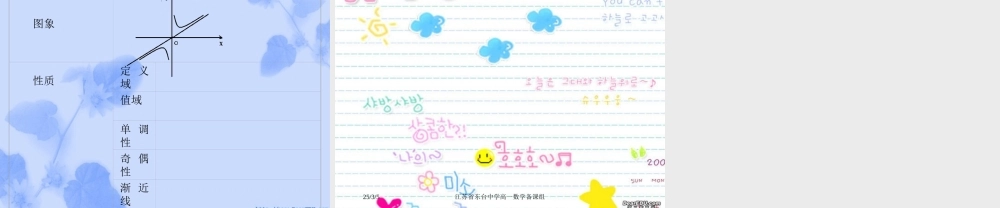 图象
O
x
性质
定义域
值域
单调性
奇偶性
渐近线
You can f
하늘로 고고씽
오늘은 그대와 하늘위로~♪
슈우우웅~
샤방샤방
상콤한?!
나의~
호호호~♫
미소
200
SUN MON
25/1/5
江苏省东台中学高一数学备课组